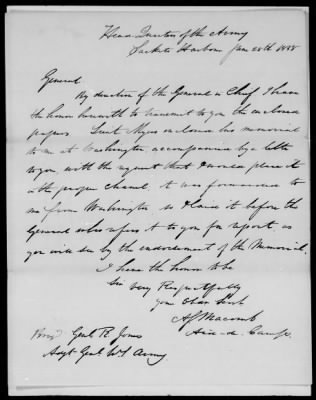 Head Quarters of the Army
Sackets Harbour Jan 28th 1838
General
By direction of the General in Chief, I have
the honor herewith to transmit to you the enclosed
papers. Lieut. enclosed his memorial
to me at Washington accompanied by a letter
to you, with the request that I would place it
in the proper channel, it was forwarded to
me from Washington & I laid it before the
General who refers it to you for report, as
you will see by the endorsement of the Memorial.
I have the honor to be
Sir very Respectfully
your Obdt Servt
Macomb
Aide-de-Camp.
Brig. Genl R. Jones
Adjt Genl U S Army